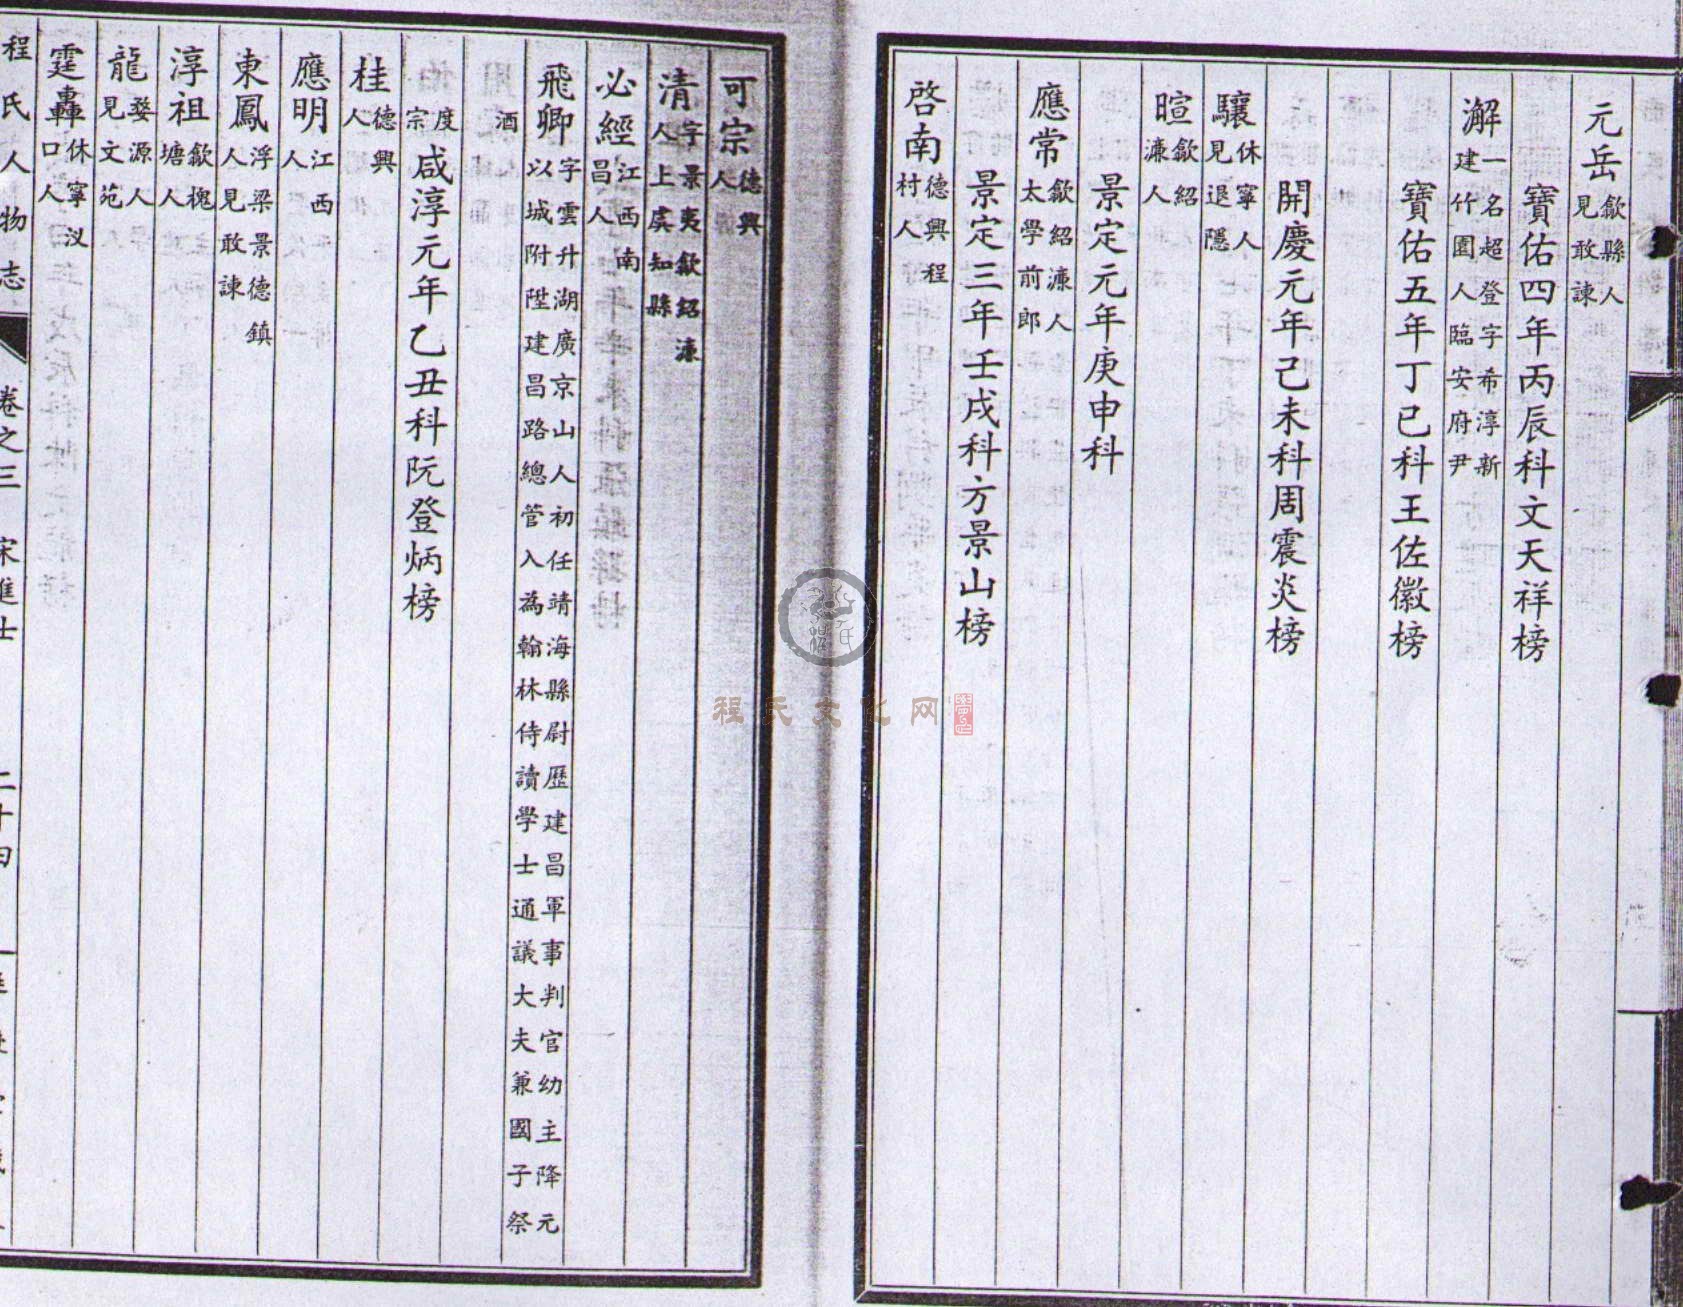 元岳 歙縣人見敢諫
寶佑四年丙辰科文天祥榜
澥 一名超登字希淳新建竹園人臨安府尹
寶佑五年丁巳科王佐徽榜
開慶元年己未科周震炎榜
驤 休寧人見退隱
暄 歙紹濂人
景定元年庚申科
應常 歙紹濂人太學前郎
景定三年壬戌科方景山榜
啓南 德興程村人
可宗 德興人
清 字景夷歙紹濂人上虞知縣
必經 江西南昌人
飛卿 字雲升湖廣京山人初任靖海縣尉歷建昌軍事判官幼主降元以城附陞建昌路總管入為翰林侍讀學士通議大夫兼國子祭
酒
度宗 咸淳元年乙丑科阮登炳榜
桂 德興人
應明 江西人
東鳳 浮梁景德鎮人見敢諫
淳祖 歙槐塘人
龍 婺源人見文苑
霆轟 休寧汊口人
程氏人物志 卷之三 宋進士 二十四
程氏文化网